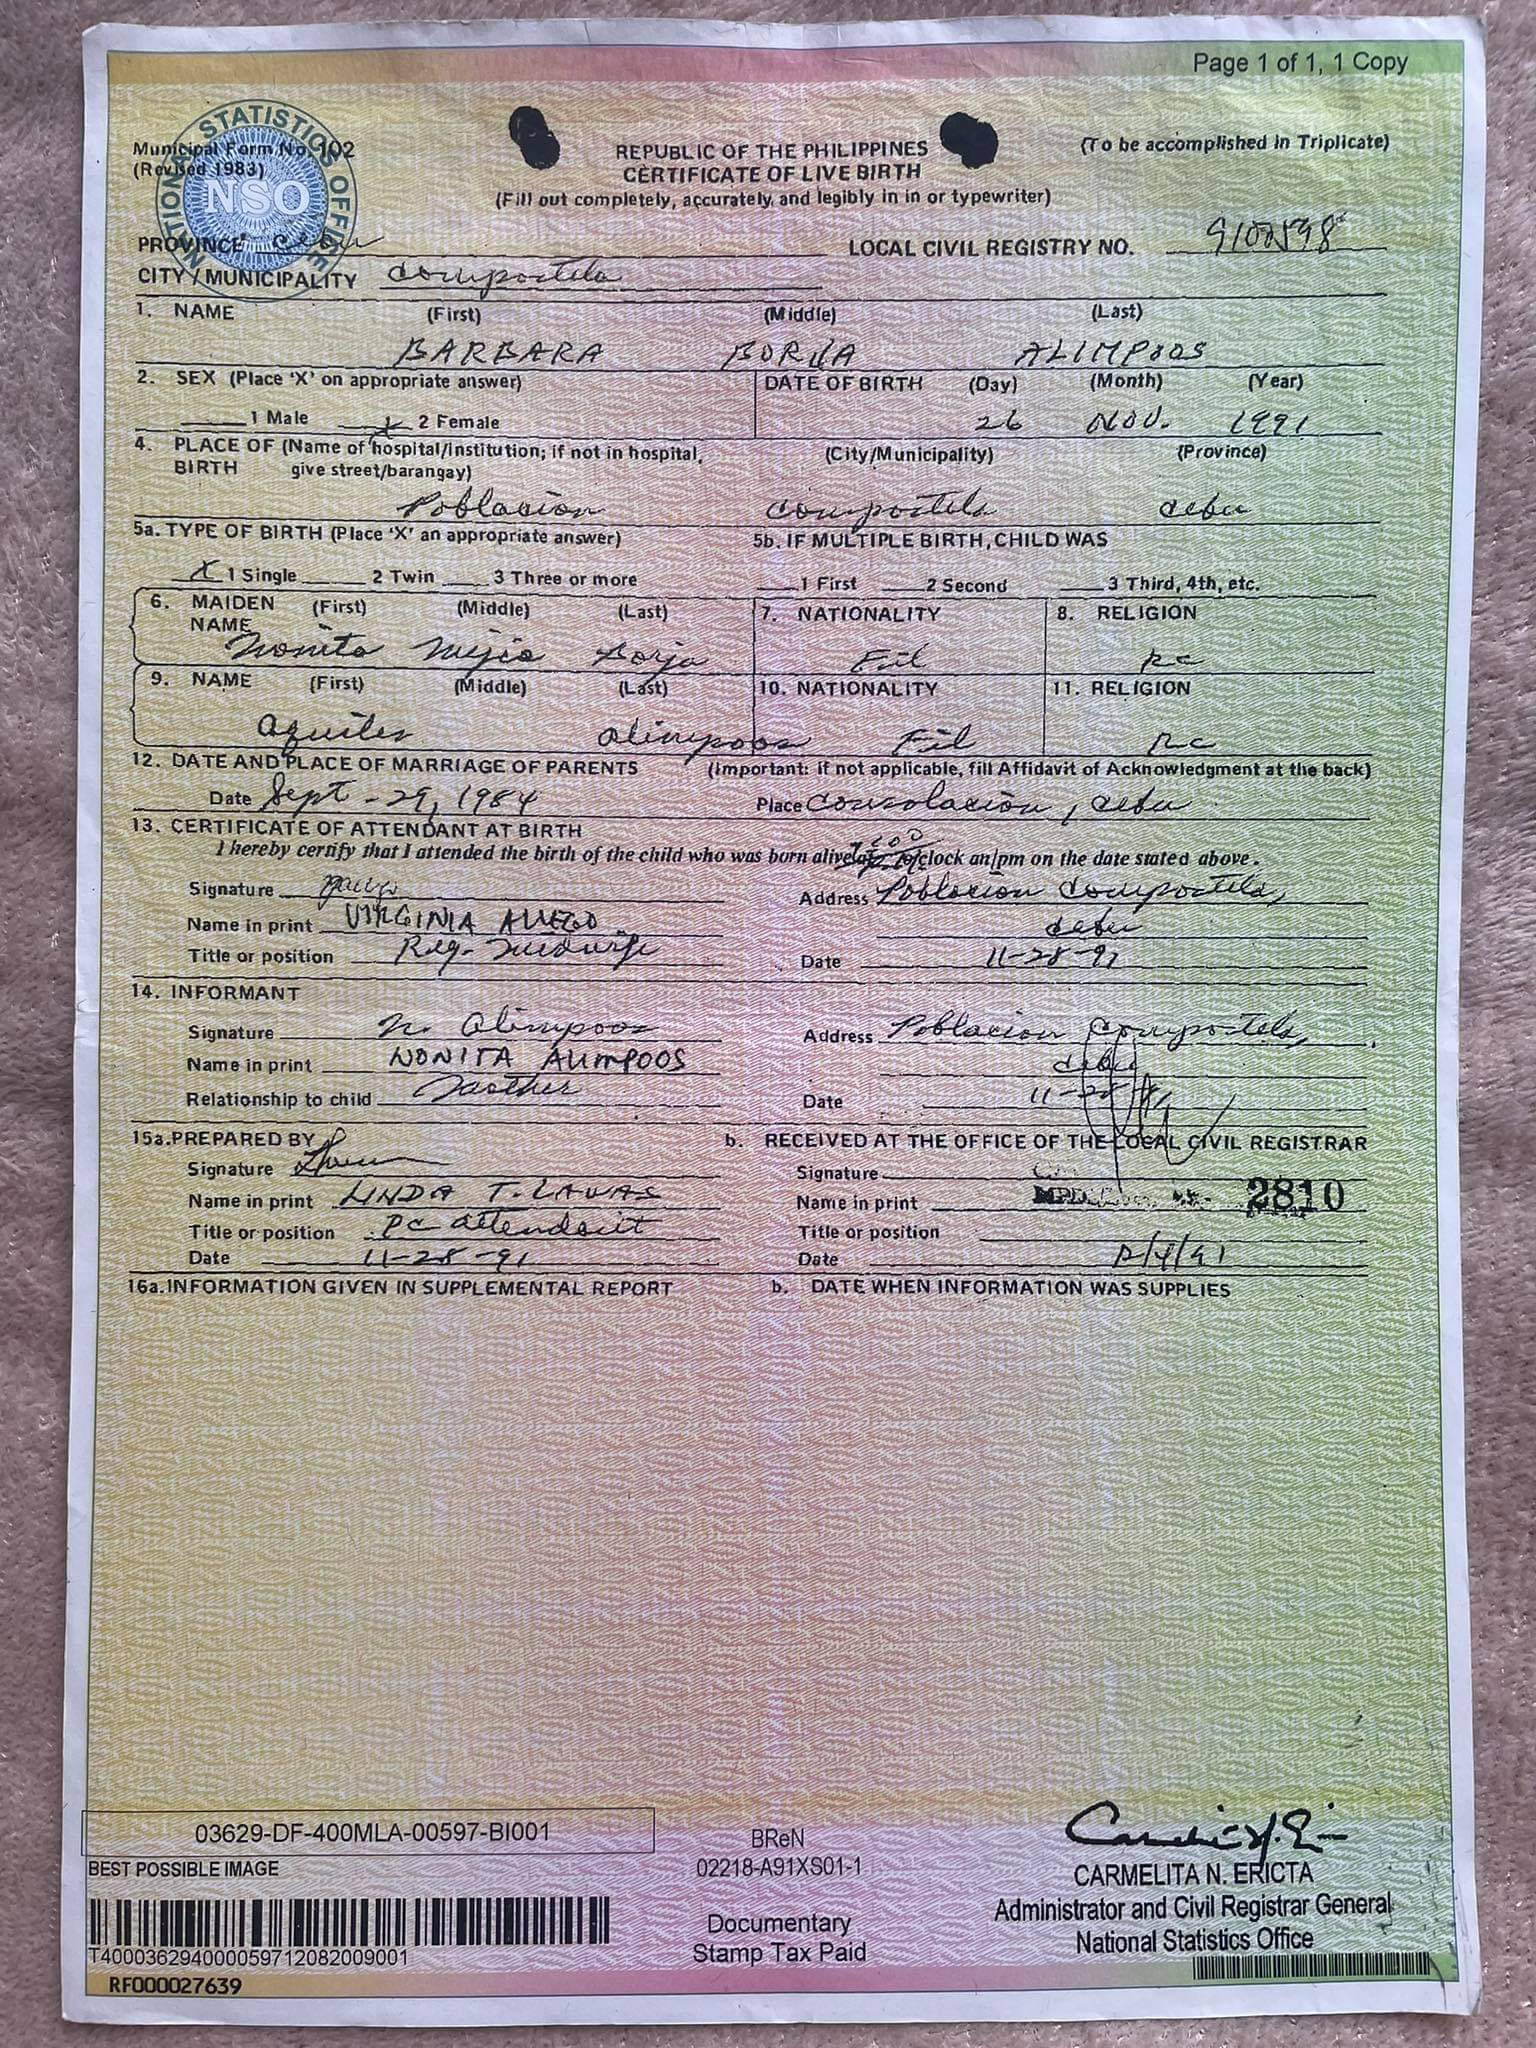 Page 1 of 1, 1 Copy
NATIONAL STATISTICS OFFICE
NSO
Municipal Form No. 102
(Revised 1983)
(To be accomplished in Triplicate)
REPUBLIC OF THE PHILIPPINES
CERTIFICATE OF LIVE BIRTH
(Fill out completely, accurately, and legibly in in or typewriter)
PROVINCE Cebu LOCAL CIVIL REGISTRY NO.
CITY / MUNICIPALITY Compostela
1. NAME (First) (Middle) (Last)
BARBARA BORJA ALIMPOOS
2. SEX (Place 'X' on appropriate answer) DATE OF BIRTH (Day) (Month) (Year)
1 Male X 2 Female 26 NOV. 1991
4. PLACE OF (Name of hospital/institution; if not in hospital, (City/Municipality) (Province)
BIRTH give street/barangay)
Poblacion Compostela Cebu
5a. TYPE OF BIRTH (Place 'X' an appropriate answer) 5b. IF MULTIPLE BIRTH, CHILD WAS
X 1 Single 2 Twin 3 Three or more 1 First 2 Second 3 Third, 4th, etc.
6. MAIDEN (First) (Middle) (Last) 7. NATIONALITY 8. RELIGION
NAME
Nonita Mejia Borja Fil RC
9. NAME (First) (Middle) (Last) 10. NATIONALITY 11. RELIGION
Aquiles Alimpoos Fil RC
12. DATE AND PLACE OF MARRIAGE OF PARENTS (Important: if not applicable, fill Affidavit of Acknowledgment at the back)
Date Sept - 29, 1984 Place Consolacion, Cebu
13. CERTIFICATE OF ATTENDANT AT BIRTH
I hereby certify that I attended the birth of the child who was born alive at o'clock an/pm on the date stated above.
Signature Address Poblacion Compostela,
Name in print VIRGINIA Cebu
Title or position Reg. Midwife Date 11-28-91
14. INFORMANT
Signature N. Alimpoos Address Poblacion Compostela,
Name in print NONITA ALIMPOOS Cebu
Relationship to child Mother Date 11-28-91
15a. PREPARED BY b. RECEIVED AT THE OFFICE OF THE LOCAL CIVIL REGISTRAR
Signature Signature
Name in print LINDA T. LAWAS Name in print 2810
Title or position PC attendant Title or position
Date 11-28-91 Date
16a. INFORMATION GIVEN IN SUPPLEMENTAL REPORT b. DATE WHEN INFORMATION WAS SUPPLIES
03629-DF-400MLA-00597-BI001
BEST POSSIBLE IMAGE
T400036294000059712082009001
RF000027639
BReN
02218-A91XS01-1
Documentary
Stamp Tax Paid
CARMELITA N. ERICTA
Administrator and Civil Registrar General
National Statistics Office